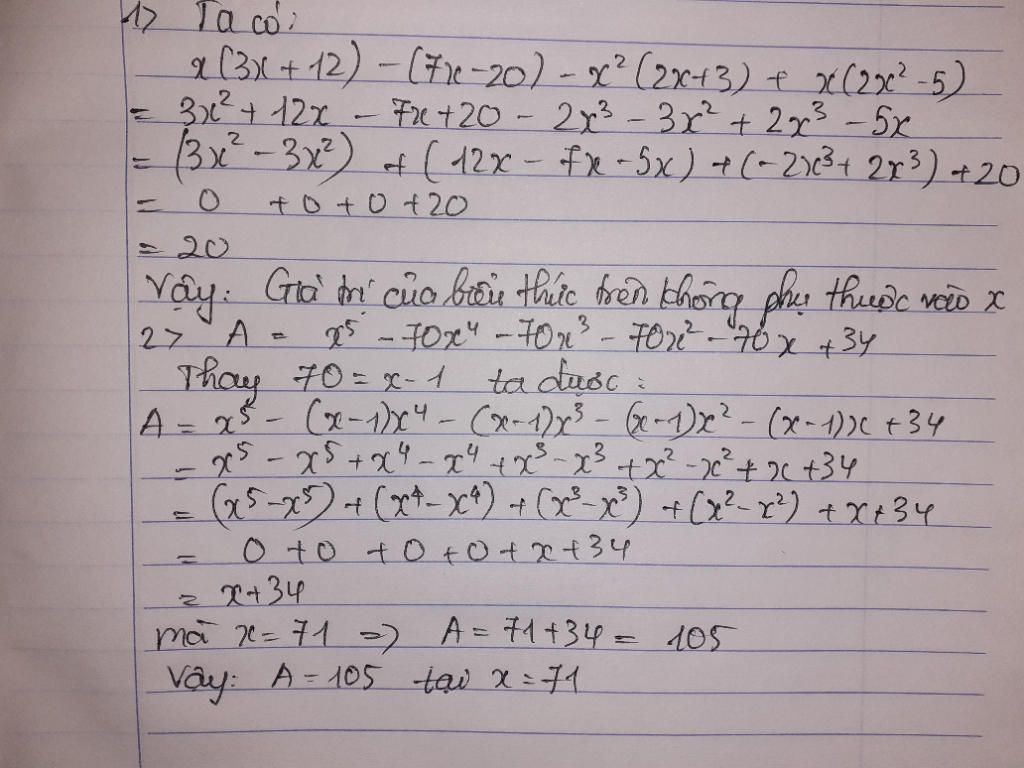 1> Ta có:
x(3x+12) - (7x-20) - x² (2x+3) + x(2x²-5)
= 3x² + 12x - 7x+20 - 2x³ - 3x² + 2x³ - 5x
= (3x² - 3x²) + (12x - 7x - 5x) + (-2x³+ 2x³) +20
= 0 +0 +0 +20
= 20
Vậy: Giá trị của biểu thức trên không phụ thuộc vào x
2> A = x⁵ - 70x⁴ - 70x³ - 70x² - 70x +34
Thay 70 = x-1 ta được:
A = x⁵ - (x-1)x⁴ - (x-1)x³ - (x-1)x² - (x-1)x +34
= x⁵ - x⁵ + x⁴ - x⁴ + x³ - x³ + x² - x² + x +34
= (x⁵-x⁵) + (x⁴-x⁴) + (x³-x³) + (x²-x²) + x+34
= 0 +0 +0 +0 + x + 34
= x+34
mà x=71 => A = 71+34 = 105
Vậy: A = 105 tại x = 71